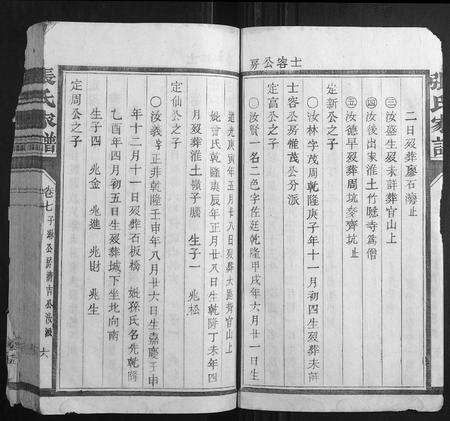 房公容士
張氏家譜
二日歿葬廖石潭止
㊂汝盛生歿未詳葬官山上
㊃汝後出家淮土竹隱寺為僧
㊄汝德早歿葬周坑麥齊坑止
定新公之子
〇汝林字茂周乾隆庚子年十一月初四生歿葬未詳
士容公房惟茂公分派
定高公之子
〇汝賢一名二色字佐廷乾隆甲戌年六月廿一日生
道光庚寅年五月廿八日歿葬大路背官山上
妣曾氏乾隆庚辰年正月廿八日生乾隆丁未年四
月歿葬淮土嶺子腦 生子一 兆松
定仙公之子
〇汝義字正非乾隆壬申年八月廿六日生嘉慶壬申
年十二月十一日歿葬石板橋 妣孫氏名先乾隆
乙酉年四月初五日生歿葬城下坐北向南
生子四 兆金 兆進 兆財 兆生
定周公之子
張氏家譜
卷七